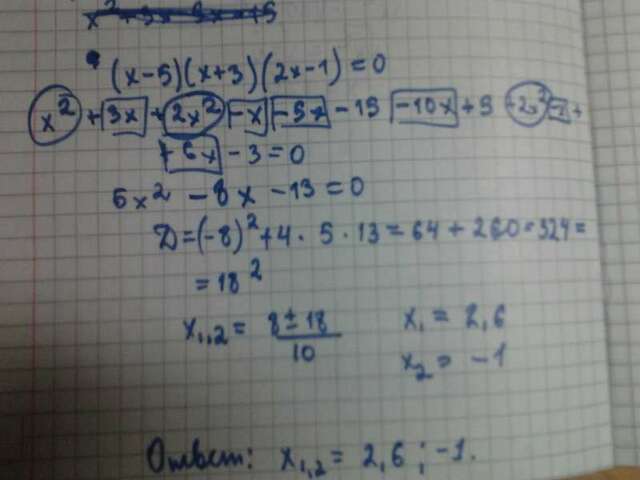 (x-5)(x+3)(2x-1)=0
x²+3x+2x²-x-5x-15-10x+5+2x²-x+
+6x-3=0
5x²-8x-13=0
D=(-8)²+4·5·13=64+260=324=
=18²
x₁,₂= 8±18/10 x₁=2,6
x₂=-1
Ответ: x₁,₂=2,6;-1.